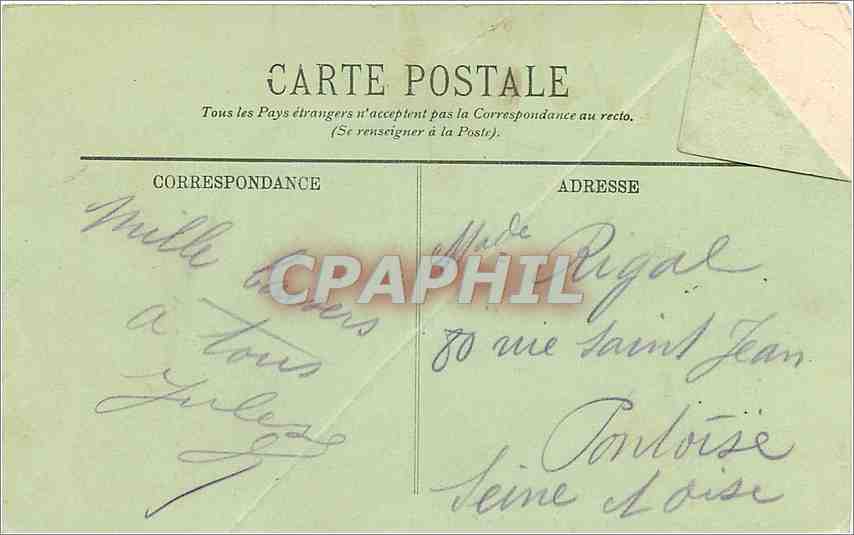 CARTE POSTALE
Tous les Pays étrangers n'acceptent pas la Correspondance au recto.
(Se renseigner à la Poste).
CORRESPONDANCE
Mille
a tous
Jules
ADRESSE
Made Rigal
80 rue Saint Jean
Pontoise
Seine et oise
CPAPHIL